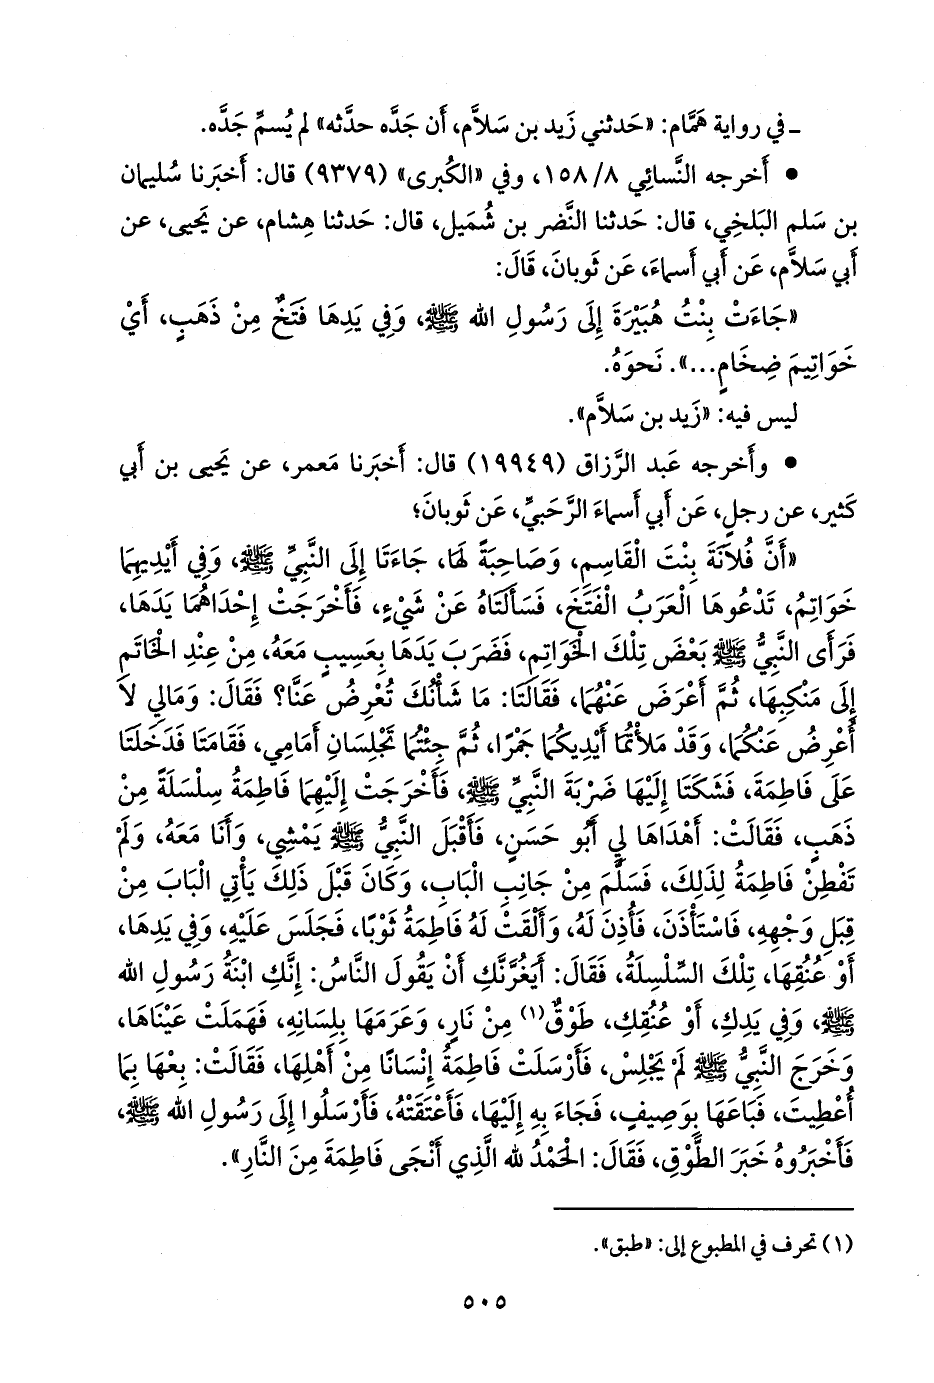 ـ في رواية هَمَّام: «حَدثني زَيد بن سَلاَّم، أَن جَدَّه حدَّثه» لم يُسمِّ جَدَّه.
• أَخرجه النَّسائِي ٨/ ١٥٨، وفي «الكُبرى» (٩٣٧٩) قال: أَخبَرنا سُليمان
بن سَلم البَلخِي، قال: حَدثنا النَّضر بن شُمَيل، قال: حَدثنا هِشام، عن يَحيى، عن
أَبي سَلاَّم، عَن أَبي أَسماءَ، عَن ثَوبانَ، قَالَ:
«جَاءَتْ بِنْتُ هُبَيْرَةَ إِلَى رَسُولِ الله ﷺ، وَفِي يَدِهَا فَتَخٌ مِنْ ذَهَبٍ، أَيْ
خَوَاتِيمَ ضِخَامٍ...». نَحوَهُ.
ليس فيه: «زَيد بن سَلاَّم».
• وأَخرجه عَبد الرَّزاق (١٩٩٤٩) قال: أَخبَرنا مَعمر، عن يَحيى بن أَبي
كَثير، عن رجلٍ، عَن أَبي أَسماءَ الرَّحَبيِّ، عَن ثَوبانَ؛
«أَنَّ فُلاَنَةَ بِنْتَ الْقَاسِمِ، وَصَاحِبَةً لَهَا، جَاءَتَا إِلَى النَّبِيِّ ﷺ، وَفِي أَيْدِيهِمَا
خَوَاتِمُ، تَدْعُوهَا الْعَرَبُ الْفَتَخَ، فَسَأَلَتَاهُ عَنْ شَيْءٍ، فَأَخْرَجَتْ إِحْدَاهُمَا يَدَهَا،
فَرَأَى النَّبِيُّ ﷺ بَعْضَ تِلْكَ الْخَوَاتِمِ، فَضَرَبَ يَدَهَا بِعَسِيبٍ مَعَهُ، مِنْ عِنْدِ الْخَاتَمِ
إِلَى مَنْكِبِهَا، ثُمَّ أَعْرَضَ عَنْهُمَا، فَقَالَتَا: مَا شَأْنُكَ تُعْرِضُ عَنَّا؟ فَقَالَ: وَمَالِي لاَ
أُعْرِضُ عَنْكُمَا، وَقَدْ مَلأْتُمَا أَيْدِيكُمَا جَمْرًا، ثُمَّ جِئْتُمَا تَجْلِسَانِ أَمَامِي، فَقَامَتَا فَدَخَلَتَا
عَلَى فَاطِمَةَ، فَشَكَتَا إِلَيْهَا ضَرْبَةَ النَّبِيِّ ﷺ، فَأَخْرَجَتْ إِلَيْهِمَا فَاطِمَةُ سِلْسَلَةً مِنْ
ذَهَبٍ، فَقَالَتْ: أَهْدَاهَا لِي أَبُو حَسَنٍ، فَأَقْبَلَ النَّبِيُّ ﷺ يَمْشِي، وَأَنَا مَعَهُ، وَلَمْ
تَفْطِنْ فَاطِمَةُ لِذَلِكَ، فَسَلَّمَ مِنْ جَانِبِ الْبَابِ، وَكَانَ قَبْلَ ذَلِكَ يَأْتِي الْبَابَ مِنْ
قِبَلِ وَجْهِهِ، فَاسْتَأْذَنَ، فَأُذِنَ لَهُ، وَأَلْقَتْ لَهُ فَاطِمَةُ ثَوْبًا، فَجَلَسَ عَلَيْهِ، وَفِي يَدِهَا،
أَوْ عُنُقِهَا، تِلْكَ السِّلْسِلَةُ، فَقَالَ: أَيَغُرَّنَّكِ أَنْ يَقُولَ النَّاسُ: إِنَّكِ ابْنَةُ رَسُولِ الله
ﷺ، وَفِي يَدِكِ، أَوْ عُنُقِكِ، طَوْقٌ(١) مِنْ نَارٍ، وَعَرَمَهَا بِلِسَانِهِ، فَهَمَلَتْ عَيْنَاهَا،
وَخَرَجَ النَّبِيُّ ﷺ لَمْ يَجْلِسْ، فَأَرْسَلَتْ فَاطِمَةُ إِنْسَانًا مِنْ أَهْلِهَا، فَقَالَتْ: بِعْهَا بِمَا
أُعْطِيتَ، فَبَاعَهَا بِوَصِيفٍ، فَجَاءَ بِهِ إِلَيْهَا، فَأَعْتَقَتْهُ، فَأَرْسَلُوا إِلَى رَسُولِ الله ﷺ،
فَأَخْبَرُوهُ خَبَرَ الطَّوْقِ، فَقَالَ: الْحَمْدُ لله الَّذِي أَنْجَى فَاطِمَةَ مِنَ النَّارِ».
(١) تحرف في المطبوع إلى: «طبق».
٥٠٥